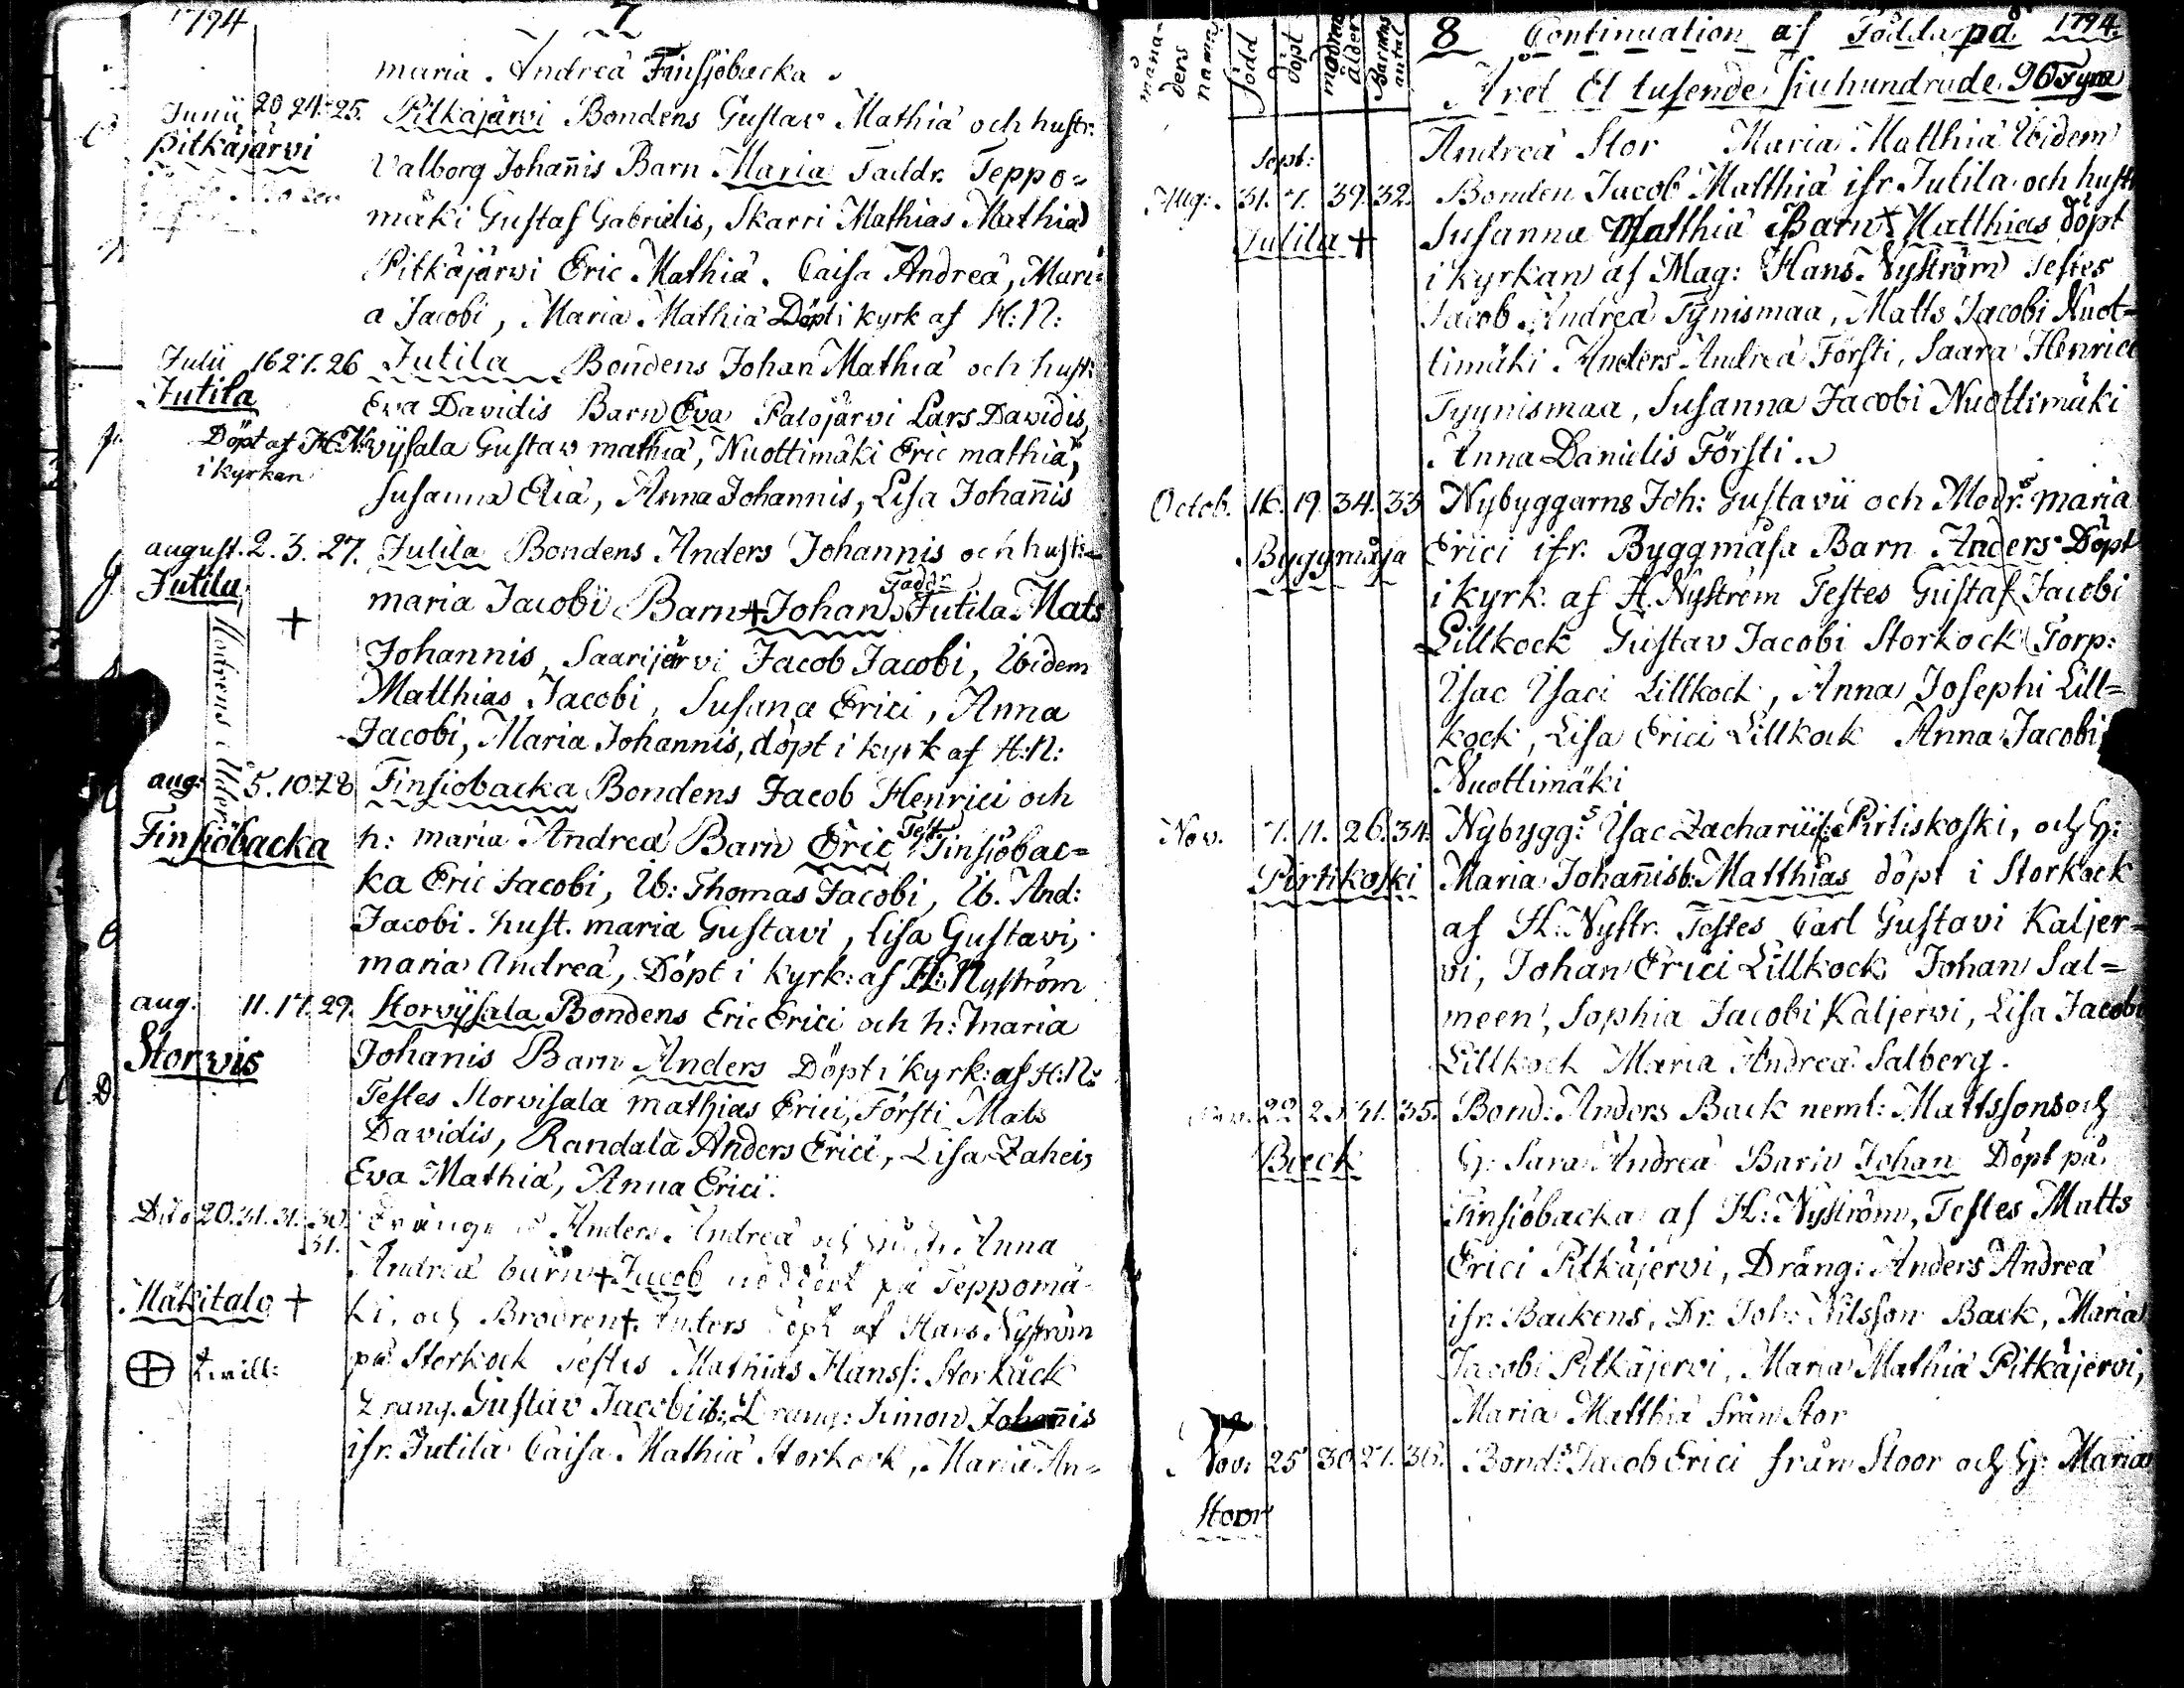 1794
7
maria Andreä Finsjöbacka
Junii 20 24. 25. Pitkäjärvi Bondens Gustav Mathiä och hustr:
Pitkäjärvi Valborg Johannis Barn Maria Faddr. Teppo=
mäki Gustaf Gabrielis, Skarri Mathias Mathiä
Pitkäjärvi Eric Mathiä. Caisa Andreä, Mari=
a Jacobi, Maria Mathiä Döpt i kyrk af H: N:
Julii 16 27. 26 Jutila Bondens Johan Mathiä och hust:
Jutila Eva Davidis Barn Eva Palojärvi Lars Davidis,
Döpt af H: N: Wijsala Gustav mathiä, Nuottimäki Eric mathiä,
i kyrkan Susanna Eliä, Anna Johannis, Lisa Johannis
august. 2. 3. 27. Jutila Bondens Anders Johannis och hust:
Jutila + maria Jacobi Barn + Johan Faddr Jutila Mats
Johannis, Saarijärvi Jacob Jacobi, Ibidem
Matthias Jacobi, Susana Erici, Anna
Jacobi, Maria Johannis, döpt i kyrk af H: N:
Modrens Ålder
aug: 5. 10. 28 Finsiobacka Bondens Jacob Henrici och
Finsiöbacka h: maria Andreä Barn Eric Test. Finsiöbac=
ka Eric Jacobi, Ib: Thomas Jacobi, Ib. And:
Jacobi. hust. maria Gustavi, Lisa Gustavi,
maria Andreä, Döpt i kyrk: af H: Nyström
aug. 11. 17. 29. Storvijsala Bondens Eric Erici och h: Maria
Storvis Johanis Barn Anders Döpt i kyrk: af H: N:
Testes Storvisala mathias Erici, Försti Mats
Davidis, Randala Anders Erici, Lisa Zahei,
Eva Mathiä, Anna Erici.
Dito 20. 31. 31. 30. Drängen Anders Andreä och hustr Anna
31.
Andreä barn + Jacob nöddöpt på Teppomä=
Mäkitalo + ki, och Brodren + Anders döpt af Hans Nyström
tvill: på Storkock Testes Mathias Hanss: Storkåck
Dräng. Gustav Jacobi ib: Dräng: Simon Johannis
ifr. Jutila Caisa Mathiä Storkock, Maria An=
måna-
ders
namn
född
döpt
modrens
ålder
Barnens
antal
8 Continuation af Födda på 1794.
Året Et tusende siuhundrade 90 Fyra
Andreä Stor Maria Matthiä Ibidem
Sept:
Aug: 31. 7. 39. 32. Bonden Jacob Matthiä ifr. Jutila och hustr
Jutila + Susanna Matthiä Barn + Matthias döpt
i kyrkan af Mag: Hans Nyström Testes
Jacob Andreä Tynismaa, Matts Jacobi Nuot=
timäki Anders Andreä Försti, Saara Henrici
Tyynismaa, Susanna Jacobi Nuottimäki
Anna Danielis Försti.
Octob. 16. 19. 34. 33 Nybyggarns Joh: Gustavii och Modr:s maria
Byggmäsa Erici ifr. Byggmäsa Barn Anders Döpt
i kyrk. af H. Nyström Testes Gustaf Jacobi
Lillkock Gustav Jacobi Storkock Torp:
Isac Isaci Lillkock, Anna Josephi Lill=
kock, Lisa Erici Lillkock Anna Jacobi
Nuottimäki
Nov. 7. 11. 26. 34. Nybygg:s Isac Zacharii f: Pirtiskoski, och H:
Pirtikoski Maria Johannis b: Matthias döpt i Storkock
af H: Nystr. Testes Carl Gustavi Kaljer=
vi, Johan Erici Lillkock Johan Sal=
meen, Sophia Jacobi Kaljervi, Lisa Jacobi
Lillkock Maria Andreä Salberg.
Nov. 22 23 31. 35. Bond: Anders Back neml: Mattssons och
Back H: Sara Andreä Barn Johan Döpt på
Finsiöbacka af H: Nyström, Testes Matts
Erici Pitkäjervi, Dräng: Anders Andreä
ifr. Backens, Dr. Joh: Nilsson Back, Maria
Jacobi Pitkäjervi, Maria Mathiä Pitkäjervi,
Maria Matthiä från Stor
Nov: 25 30 27. 36. Bond:s Jacob Erici från Stoor och H: Maria
Stoor